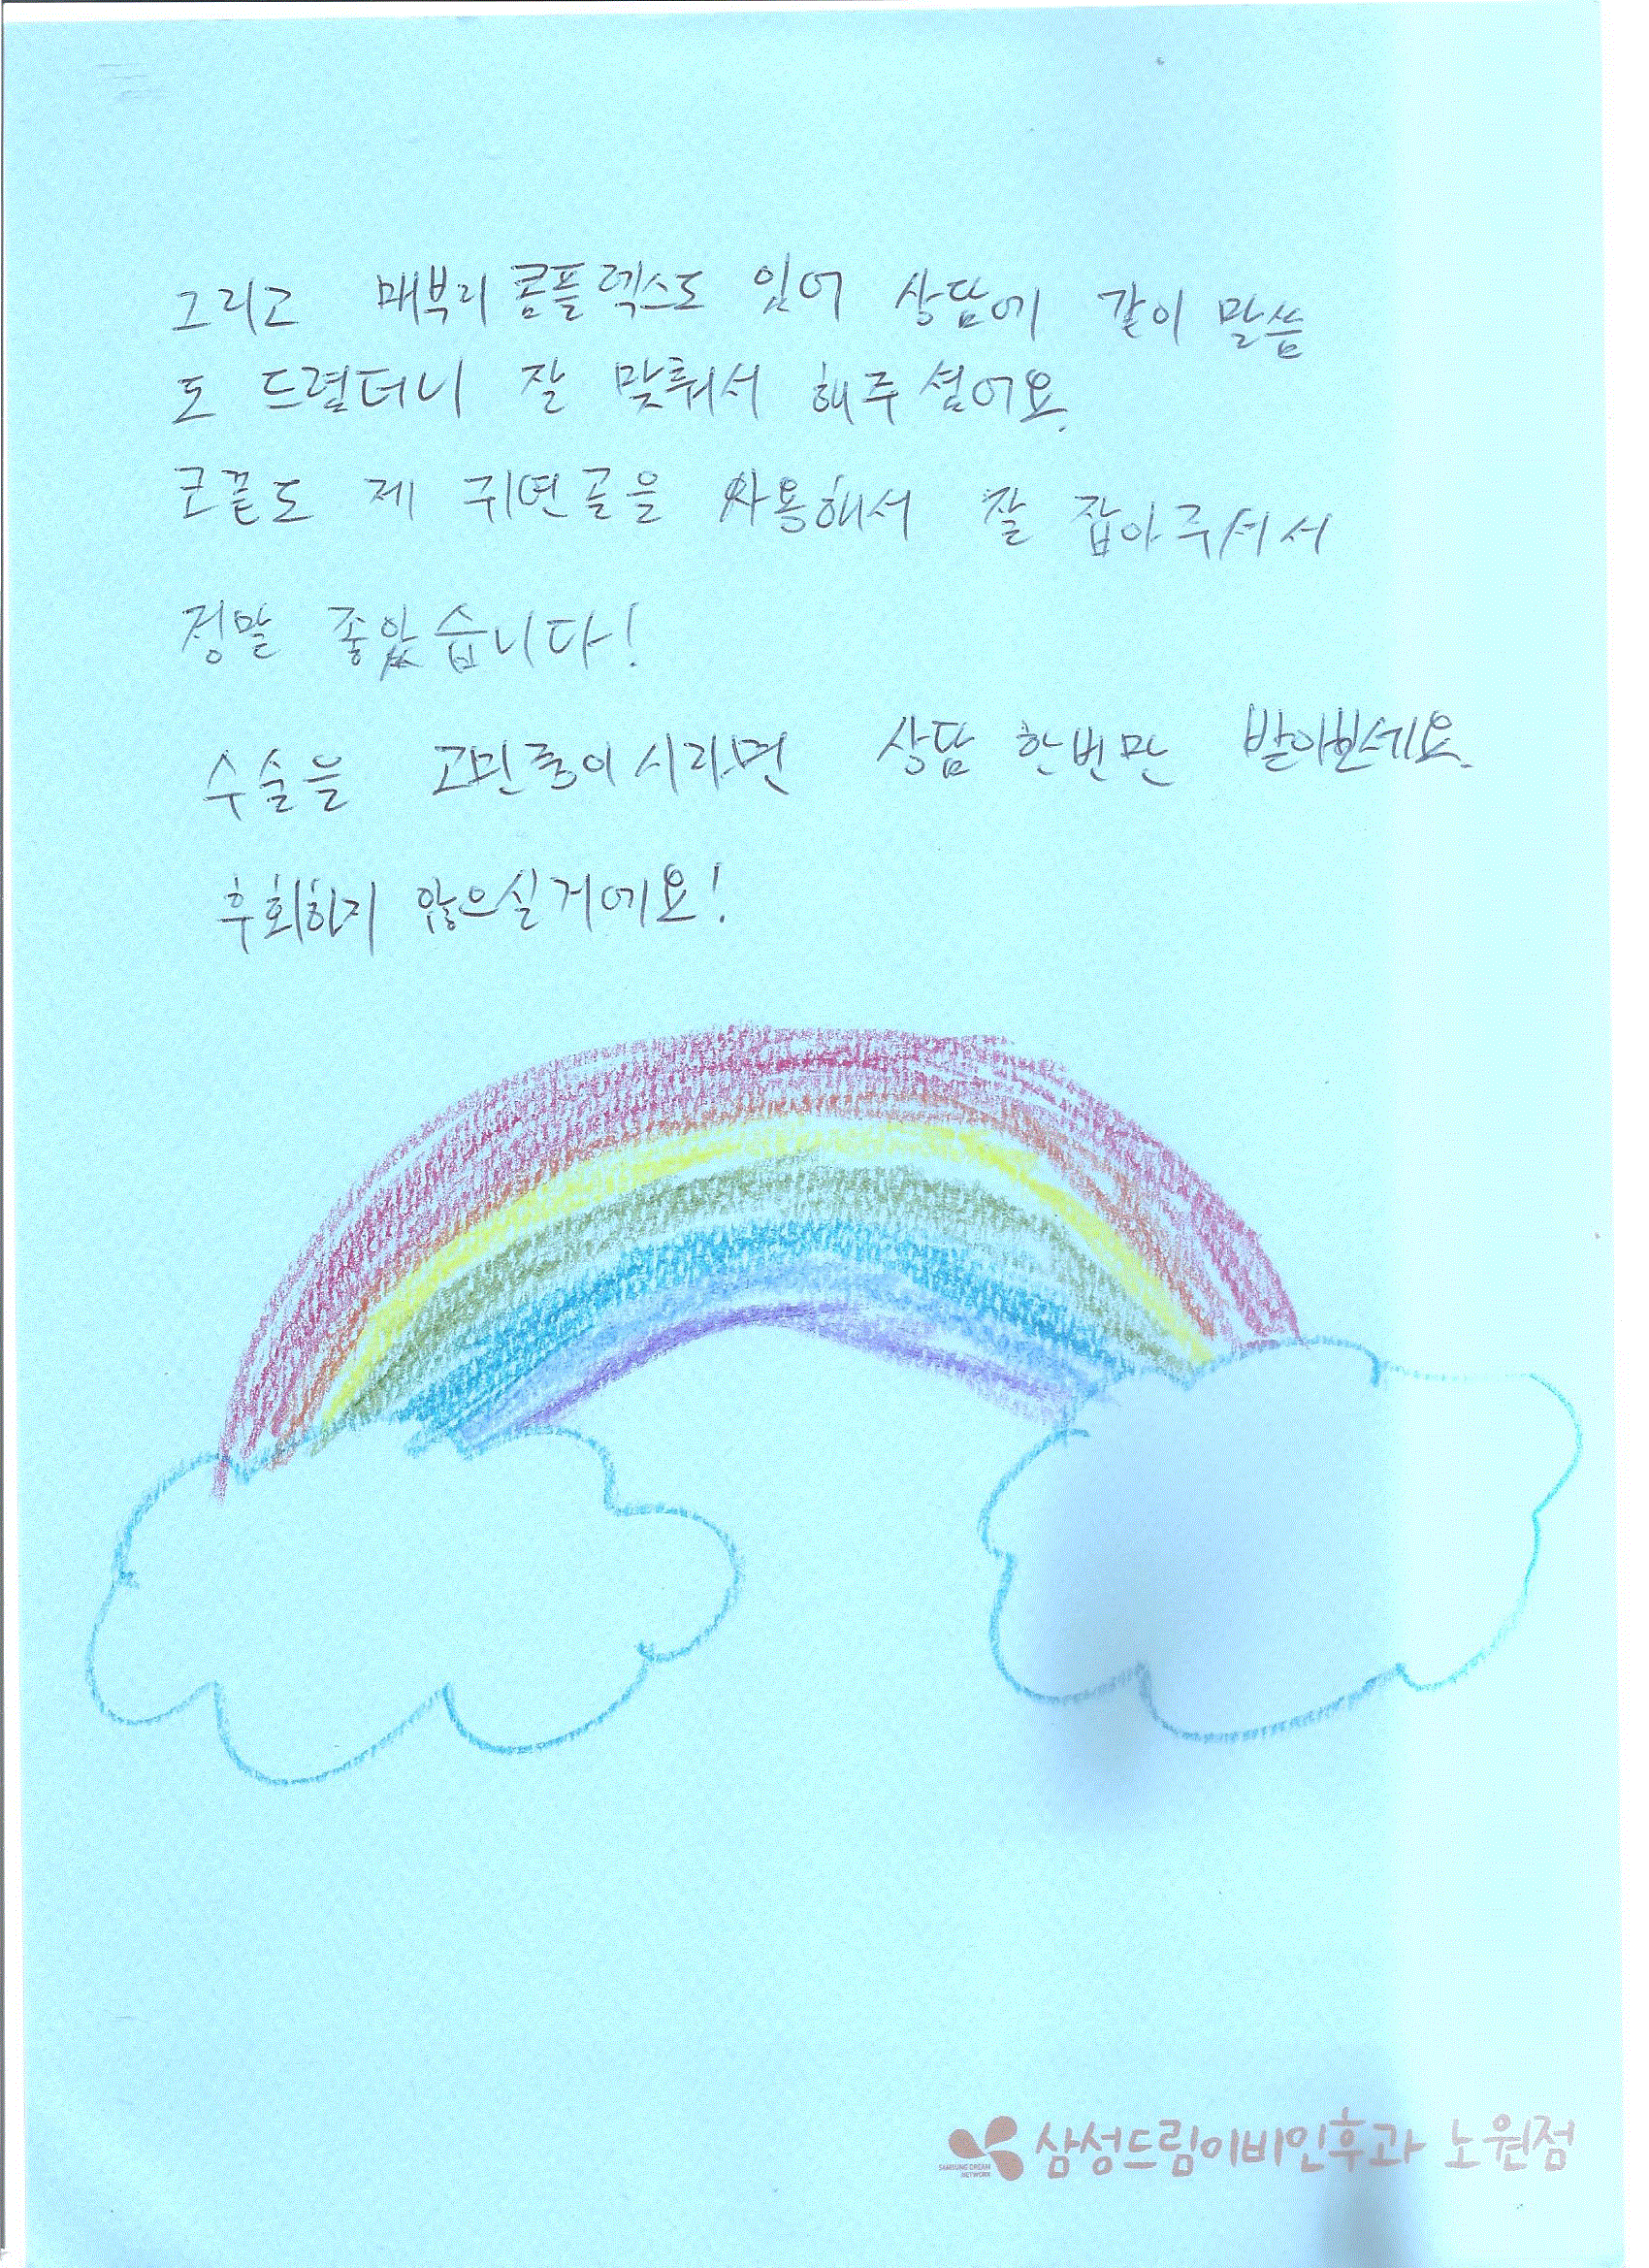 그리고 매부리 콤플렉스도 있어 상담에 같이 말씀
도 드렸더니 잘 맞춰서 해주셨어요.
코끝도 제 귀연골을 사용해서 잘 잡아주셔서
정말 좋았습니다!
수술을 고민중이시라면 상담 한번만 받아보세요.
후회하지 않으실거에요!
삼성드림이비인후과 노원점
SAMSUNG DREAM
NETWORK